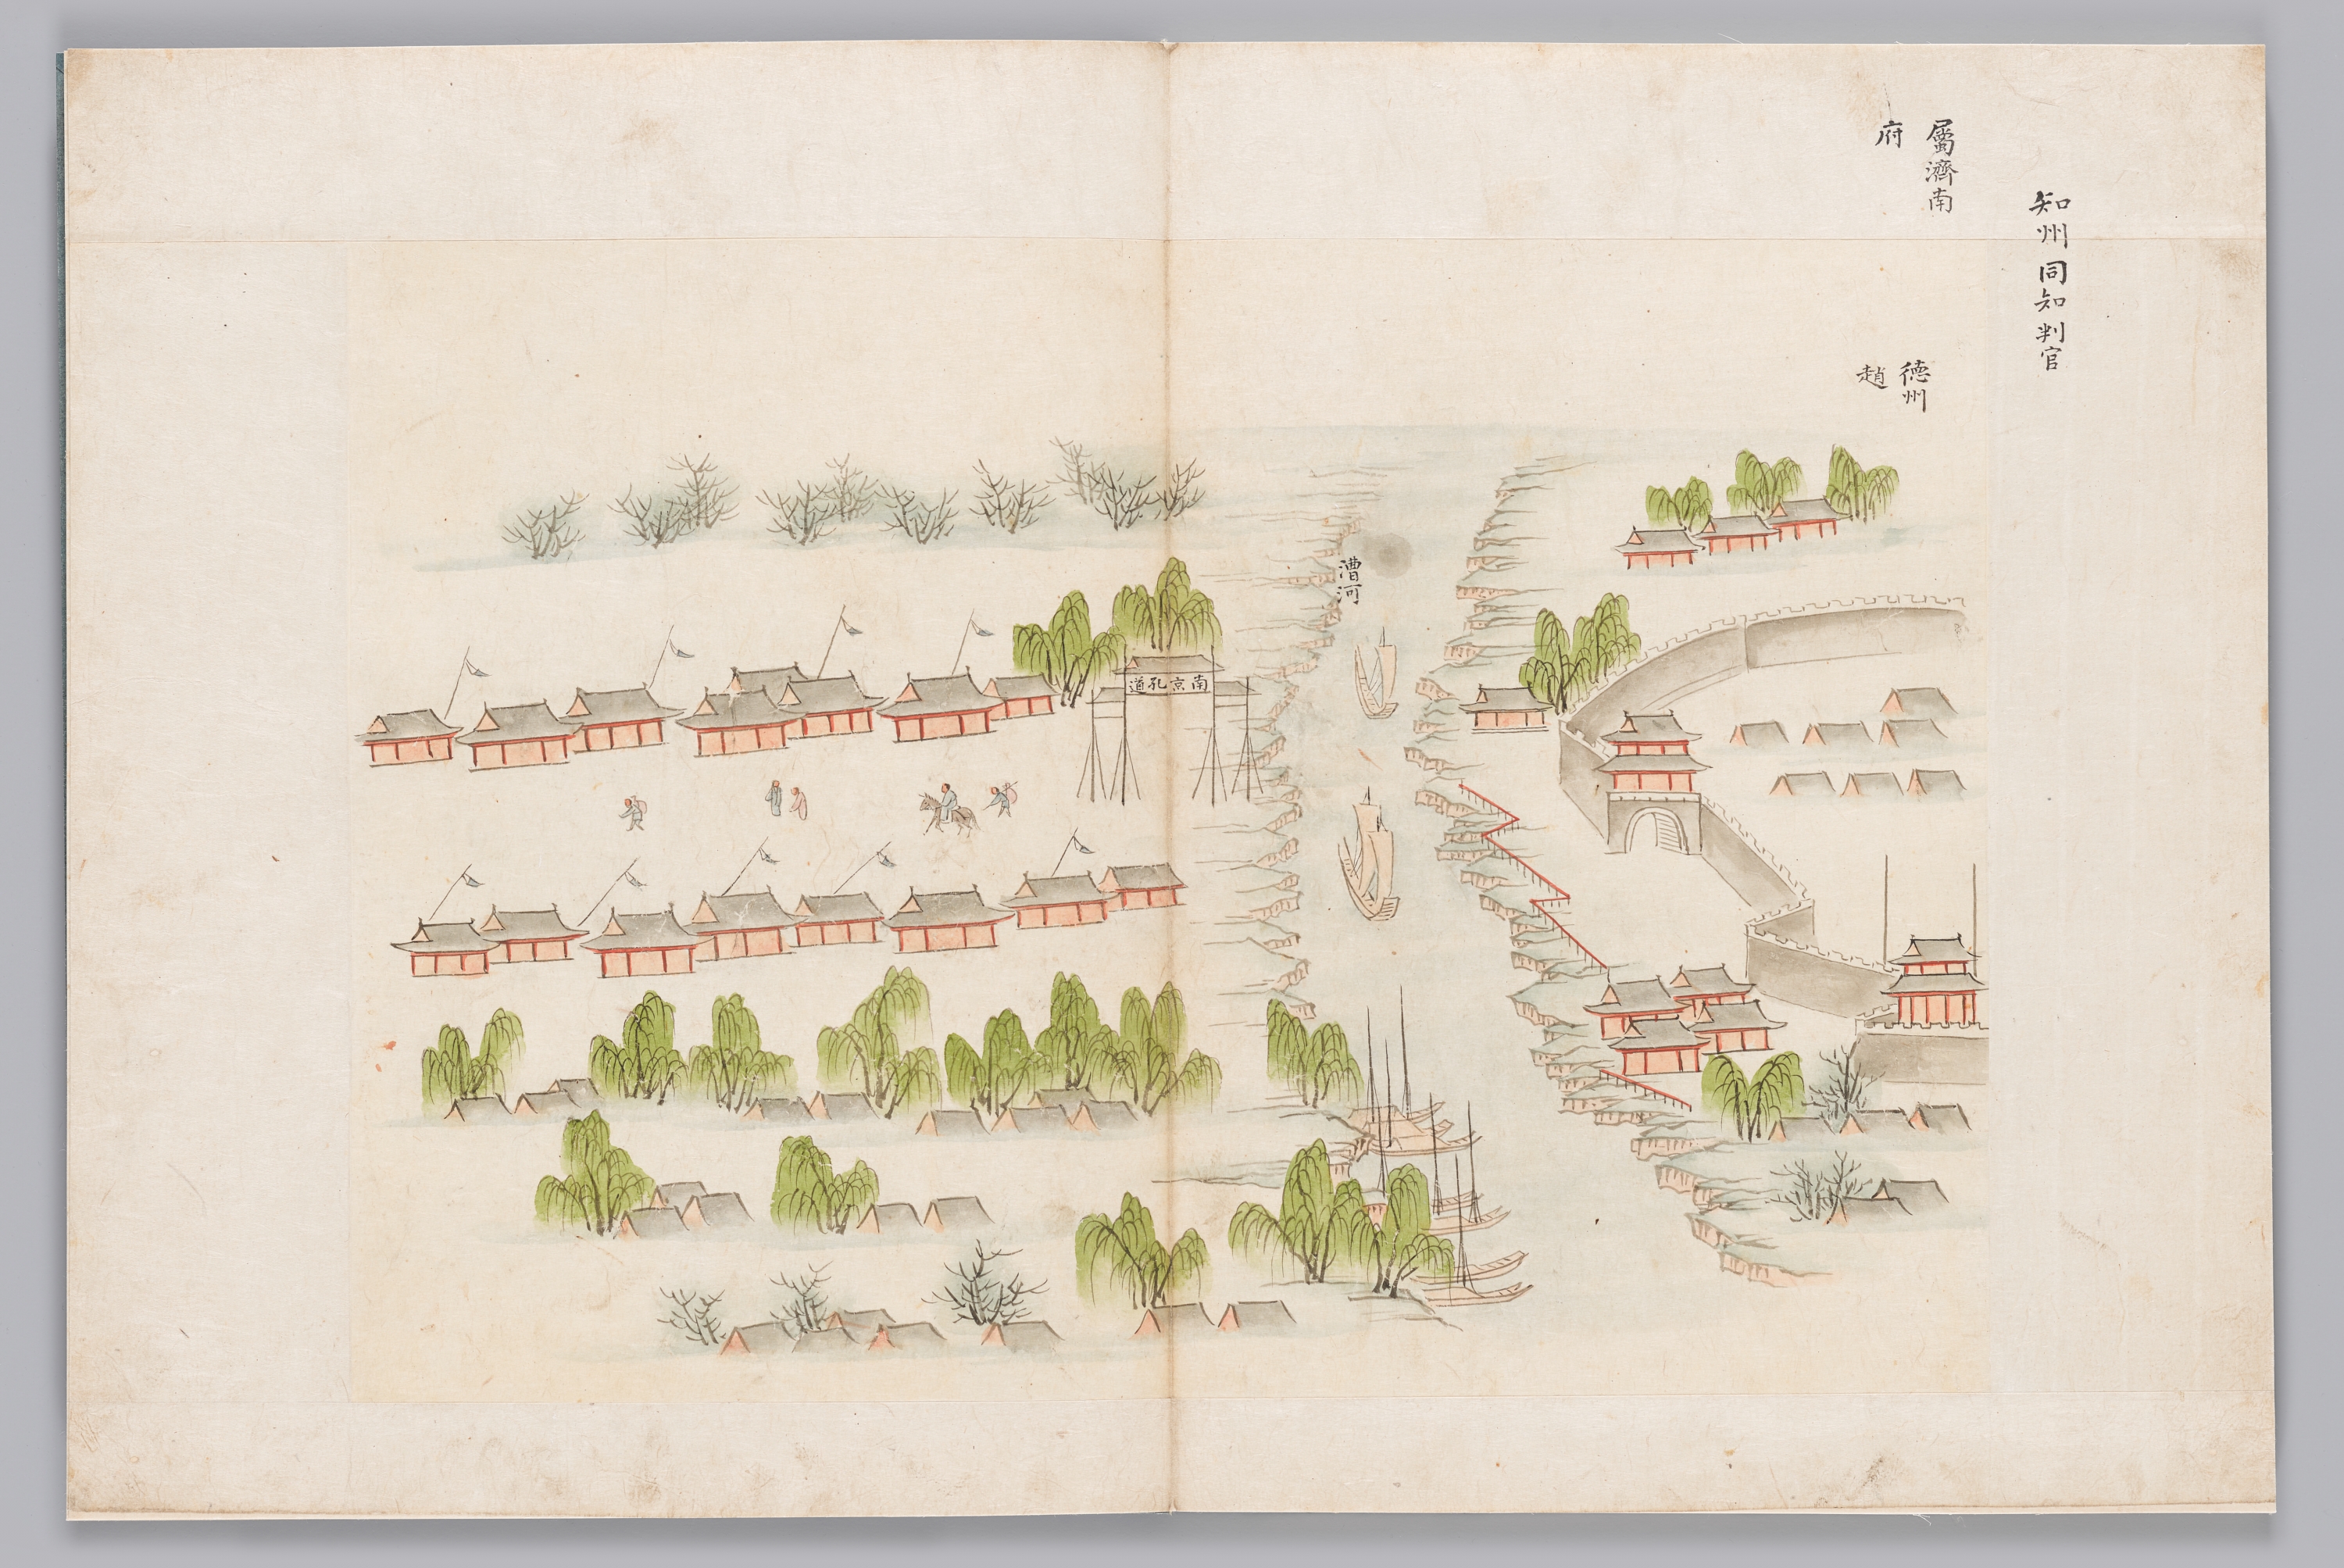 知州同知判官
屬濟南
府
德州
趙
漕河
南京孔道